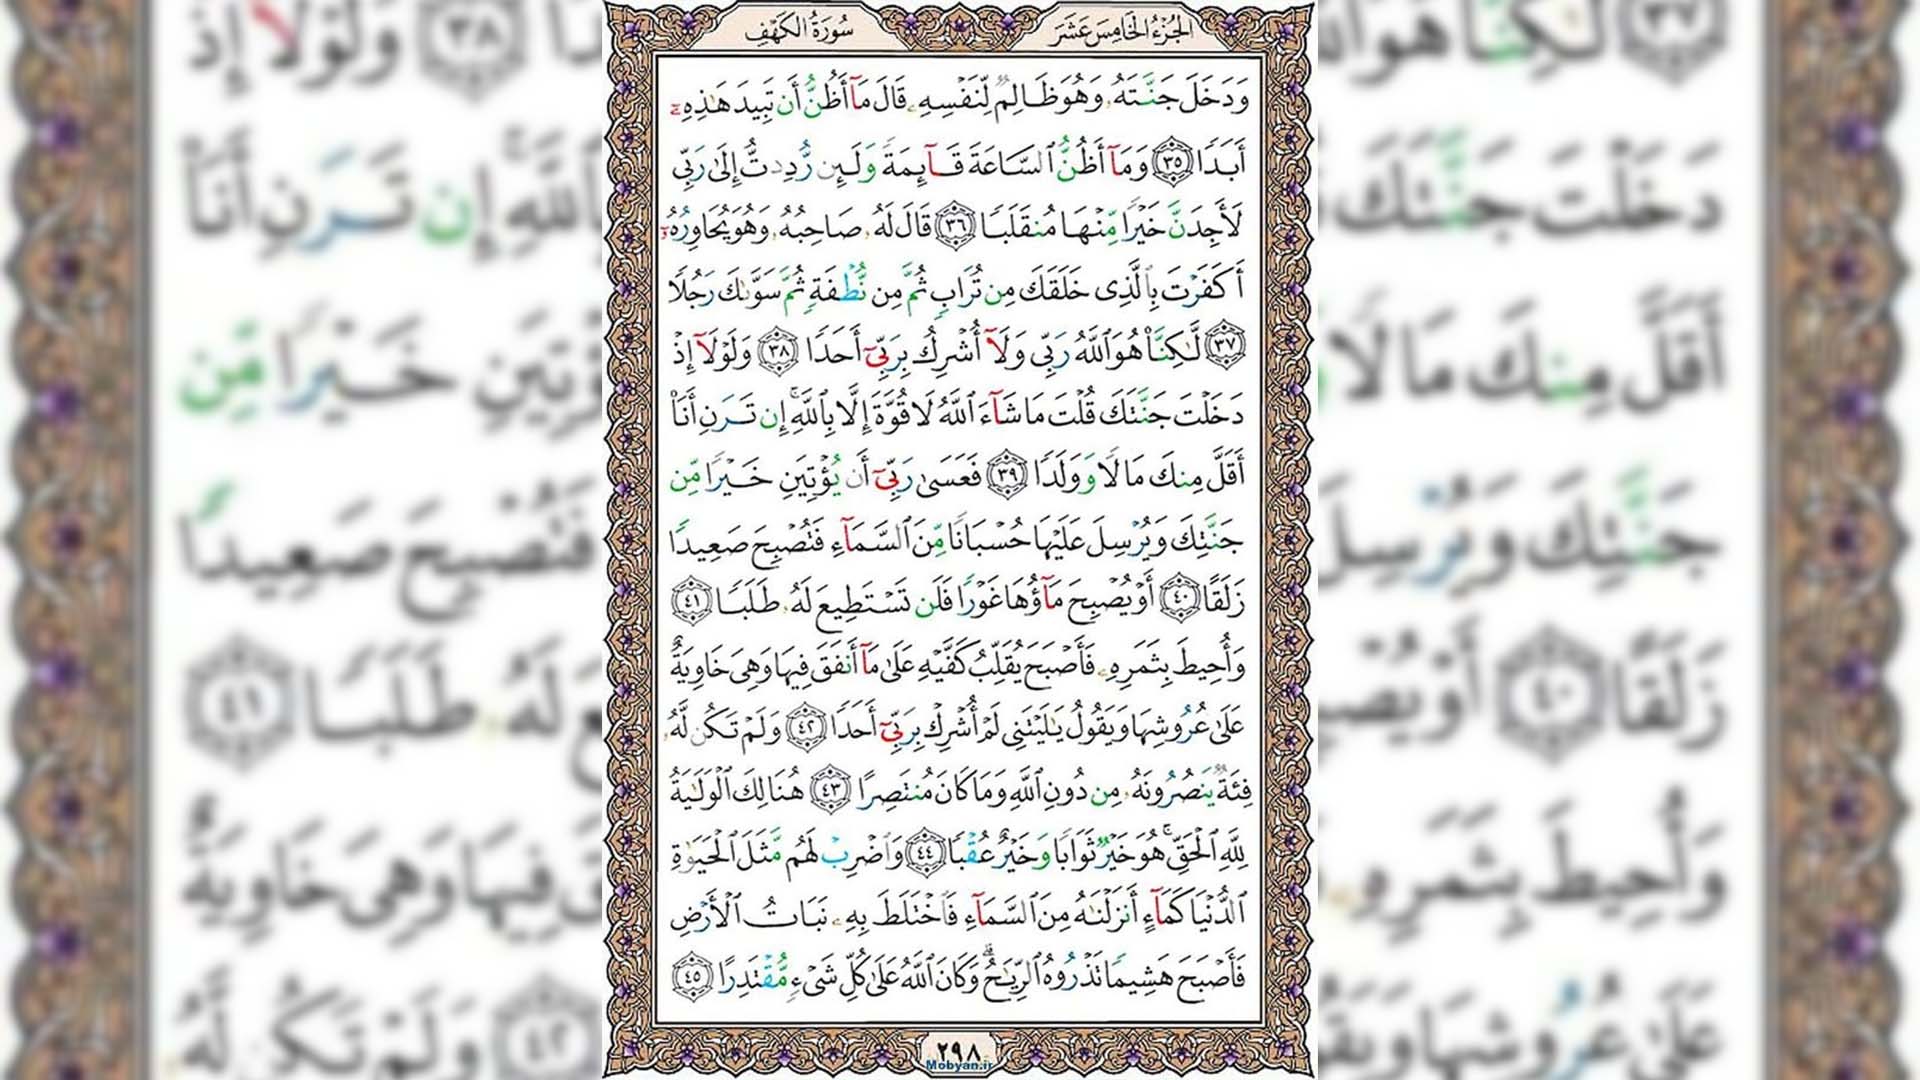 الجُزْءُ الخَامِسَ عَشَرَ
سُورَةُ الكَهْفِ
وَدَخَلَ جَنَّتَهُ وَهُوَ ظَالِمٌ لِّنَفْسِهِ قَالَ مَآ أَظُنُّ أَن تَبِيدَ هَٰذِهِ
أَبَدًا ٣٥ وَمَآ أَظُنُّ ٱلسَّاعَةَ قَآئِمَةً وَلَئِن رُّدِدتُّ إِلَىٰ رَبِّى
لَأَجِدَنَّ خَيْرًا مِّنْهَا مُنقَلَبًا ٣٦ قَالَ لَهُ صَاحِبُهُ وَهُوَ يُحَاوِرُهُ
أَكَفَرْتَ بِٱلَّذِى خَلَقَكَ مِن تُرَابٍ ثُمَّ مِن نُّطْفَةٍ ثُمَّ سَوَّىٰكَ رَجُلًا
٣٧ لَّٰكِنَّا۠ هُوَ ٱللَّهُ رَبِّى وَلَآ أُشْرِكُ بِرَبِّىٓ أَحَدًا ٣٨ وَلَوْلَآ إِذْ
دَخَلْتَ جَنَّتَكَ قُلْتَ مَا شَآءَ ٱللَّهُ لَا قُوَّةَ إِلَّا بِٱللَّهِ ۚ إِن تَرَنِ أَنَا۠
أَقَلَّ مِنكَ مَالًا وَوَلَدًا ٣٩ فَعَسَىٰ رَبِّىٓ أَن يُؤْتِيَنِ خَيْرًا مِّن
جَنَّتِكَ وَيُرْسِلَ عَلَيْهَا حُسْبَانًا مِّنَ ٱلسَّمَآءِ فَتُصْبِحَ صَعِيدًا
زَلَقًا ٤٠ أَوْ يُصْبِحَ مَآؤُهَا غَوْرًا فَلَن تَسْتَطِيعَ لَهُ طَلَبًا ٤١
وَأُحِيطَ بِثَمَرِهِ فَأَصْبَحَ يُقَلِّبُ كَفَّيْهِ عَلَىٰ مَآ أَنفَقَ فِيهَا وَهِىَ خَاوِيَةٌ
عَلَىٰ عُرُوشِهَا وَيَقُولُ يَٰلَيْتَنِى لَمْ أُشْرِكْ بِرَبِّىٓ أَحَدًا ٤٢ وَلَمْ تَكُن لَّهُ
فِئَةٌ يَنصُرُونَهُ مِن دُونِ ٱللَّهِ وَمَا كَانَ مُنتَصِرًا ٤٣ هُنَالِكَ ٱلْوَلَٰيَةُ
لِلَّهِ ٱلْحَقِّ ۚ هُوَ خَيْرٌ ثَوَابًا وَخَيْرٌ عُقْبًا ٤٤ وَٱضْرِبْ لَهُم مَّثَلَ ٱلْحَيَوٰةِ
ٱلدُّنْيَا كَمَآءٍ أَنزَلْنَٰهُ مِنَ ٱلسَّمَآءِ فَٱخْتَلَطَ بِهِ نَبَاتُ ٱلْأَرْضِ
فَأَصْبَحَ هَشِيمًا تَذْرُوهُ ٱلرِّيَٰحُ ۗ وَكَانَ ٱللَّهُ عَلَىٰ كُلِّ شَىْءٍ مُّقْتَدِرًا ٤٥
٢٩٨
Mobyan.ir